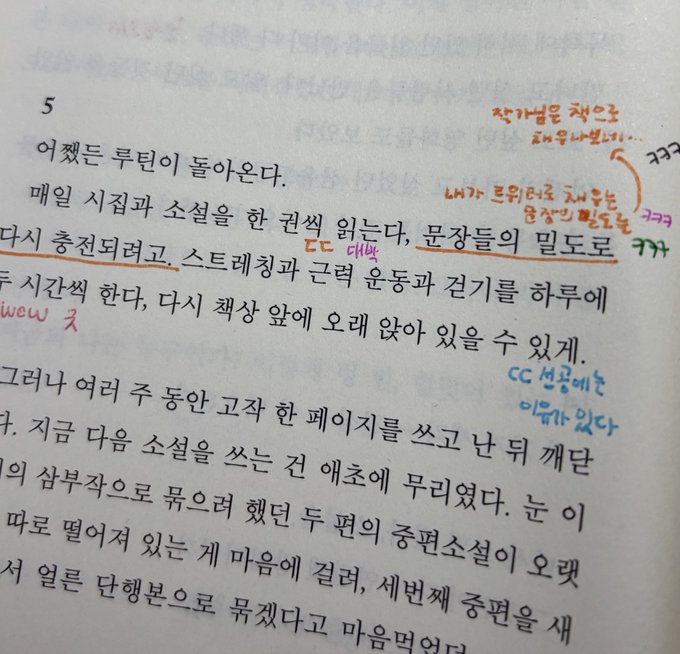 5
작가님은 책으로
채우나보네…
ㅋㅋㅋ
어쨌든 루틴이 돌아온다.
내가 트위터로 채우는
문장의 밀도를
ㅋㅋㅋ
매일 시집과 소설을 한 권씩 읽는다, 문장들의 밀도로
ㅋㅋㅋ
ㄷㄷ
대박
다시 충전되려고. 스트레칭과 근력 운동과 걷기를 하루에
두 시간씩 한다, 다시 책상 앞에 오래 앉아 있을 수 있게.
wow 굿
CC 성공에는
이유가 있다
그러나 여러 주 동안 고작 한 페이지를 쓰고 난 뒤 깨닫
다. 지금 다음 소설을 쓰는 건 애초에 무리였다. 눈 이
의 삼부작으로 묶으려 했던 두 편의 중편소설이 오랫
따로 떨어져 있는 게 마음에 걸려, 세번째 중편을 새
서 얼른 단행본으로 묶겠다고 마음먹었던